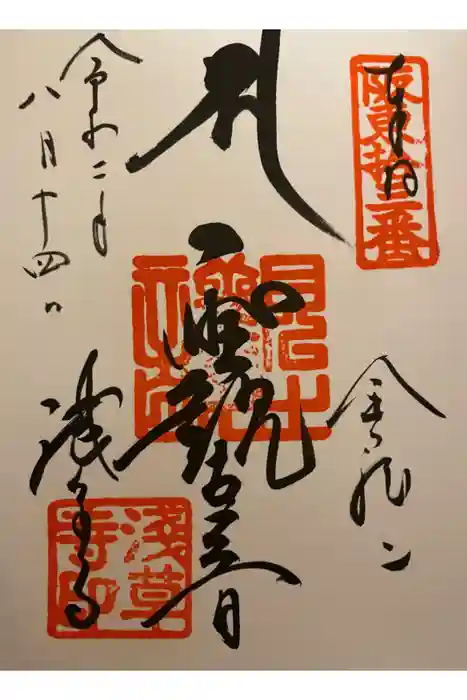 奉拝
阪東拾三番
金龍山
聖観世音
令和二年
八月十四日
浅草寺
淺草寺印